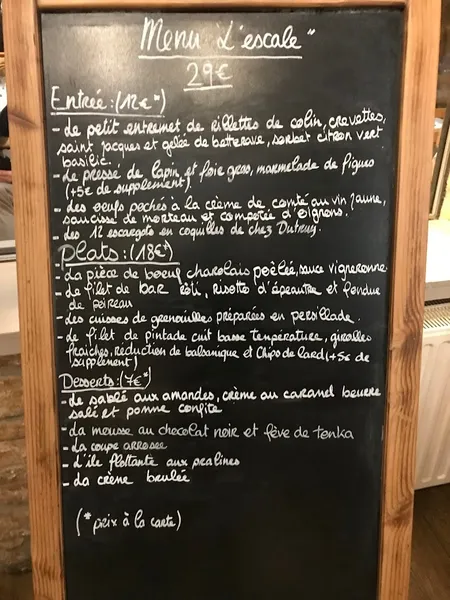 Menu L'escale"
29€
Entrée : (12€*)
- Le petit entremet de rillettes de colin, crevettes,
saint jacques et gelée de betterave, sorbet citron vert
basilic.
- Le presse de lapin et foie gras, marmelade de figues
(+5€ de supplement).
- Les oeufs pochés à la crème de comté au vin jaune,
saucisse de morteau et compotée d'oignons.
- Les 12 escargots en coquilles de chez Dutruy.
Plats : (18€*)
- La pièce de boeuf charolais poêlée, sauce vigneronne
- Le filet de bar rôti, risotto d'épeautre et fondue
de poireau
- Les cuisses de grenouilles préparées en persillade.
- Le filet de pintade cuit basse température, girolles
fraiches, reduction de balsamique et chips de lard (+5€ de
supplement)
Desserts : (7€*)
- Le sablé aux amandes, crème au caramel beurre
salé et pomme confite
- La mousse au chocolat noir et fève de tonka
- La coupe arrosee
- L'ile flottante aux pralines
- La crème brulée
(* prix à la carte)